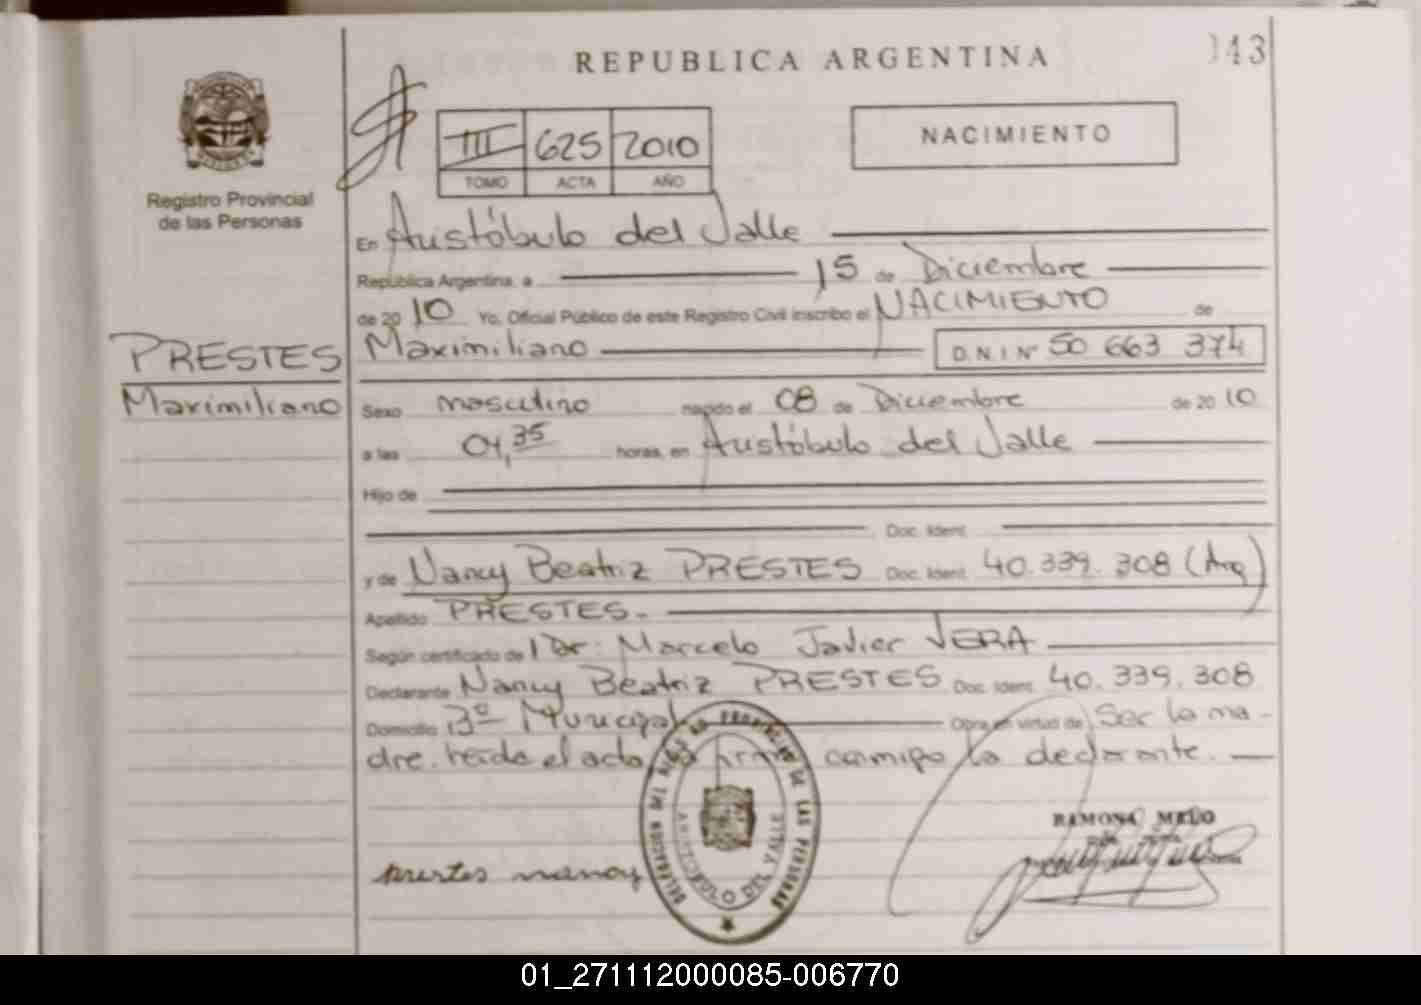 REPUBLICA ARGENTINA
143
Registro Provincial
de las Personas
III 625 2010
TOMO ACTA AÑO
NACIMIENTO
En Aristóbulo del Valle
República Argentina, a 15 de Diciembre
de 2010 Yo, Oficial Público de este Registro Civil inscribo el NACIMIENTO de
PRESTES
Maximiliano
Maximiliano D.N.I Nº 50 663 374
Sexo masculino nacido el 08 de Diciembre de 2010
a las 04,35 horas, en Aristóbulo del Valle
Hijo de
Doc. Ident.
y de Nancy Beatriz PRESTES Doc. Ident. 40.339.308 (Arg)
Apellido PRESTES.
Según certificado de Dr. Marcelo Javier VERA
Declarante Nancy Beatriz PRESTES Doc. Ident. 40.339.308
Domicilio Bº Municipal Obra en virtud de Ser la ma-
dre. Leída el acta firma conmigo la declarante.
DELEGACION DEL REGISTRO PROVINCIAL DE LAS PERSONAS
ARISTOBULO DEL VALLE
RAMONA MELO
prestes nancy
01_271112000085-006770